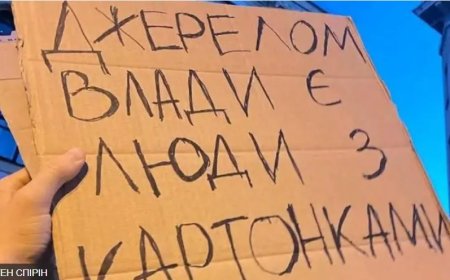 ДЖЕРЕЛОМ
ВЛАДИ Є
ЛЮДИ З
КАРТОНКАМИ
ЕН СПІРІН